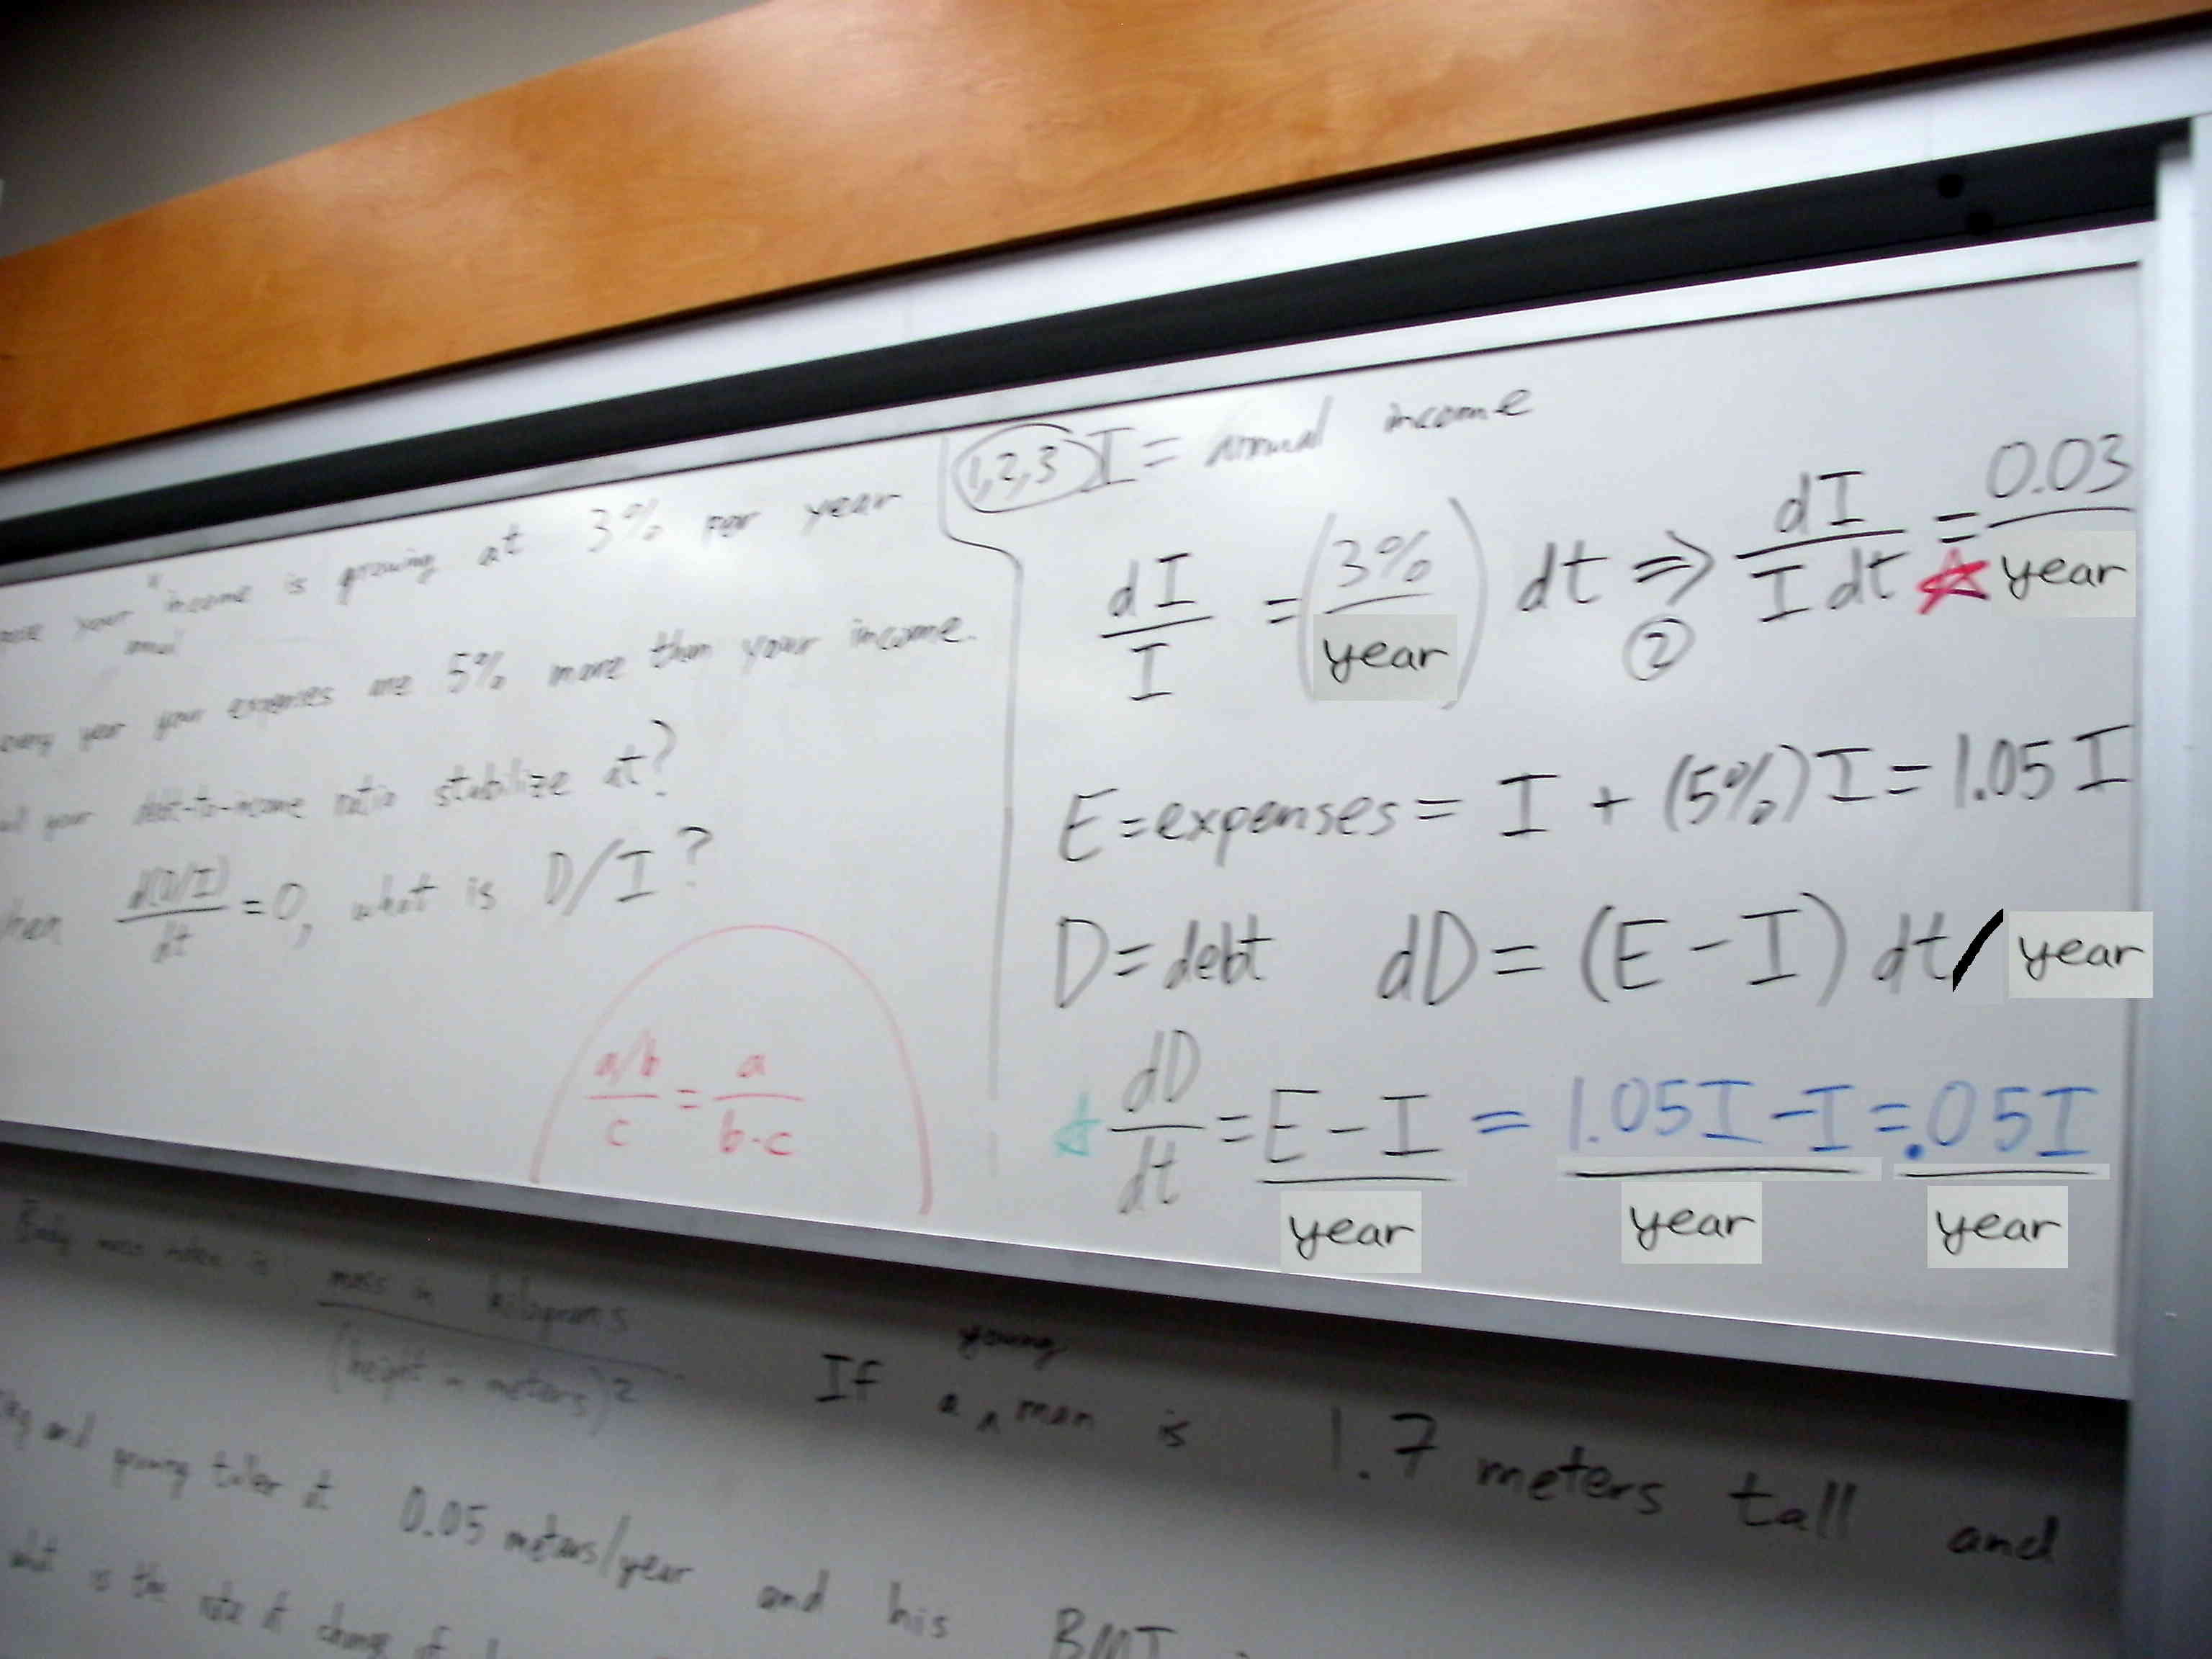 your income is growing at 3% per year
and
every year your expenses are 5% more than your income.
your debt-to-income ratio stabilize at?
when d(D/I)/dt = 0, what is D/I?
(a/b)/c = a/(b·c)
1,2,3 I = annual income
dI/I = (3%/year) dt ⇒ dI/(I dt) = 0.03/year
②
E = expenses = I + (5%) I = 1.05 I
D = debt dD = (E - I) dt / year
dD/dt = (E - I)/year = (1.05I - I)/year = .05I/year
Body mass index is mass in kilograms/(height in meters)². If a young man is 1.7 meters tall and
and growing taller at 0.05 meters/year and his BMI
what is the rate of change of